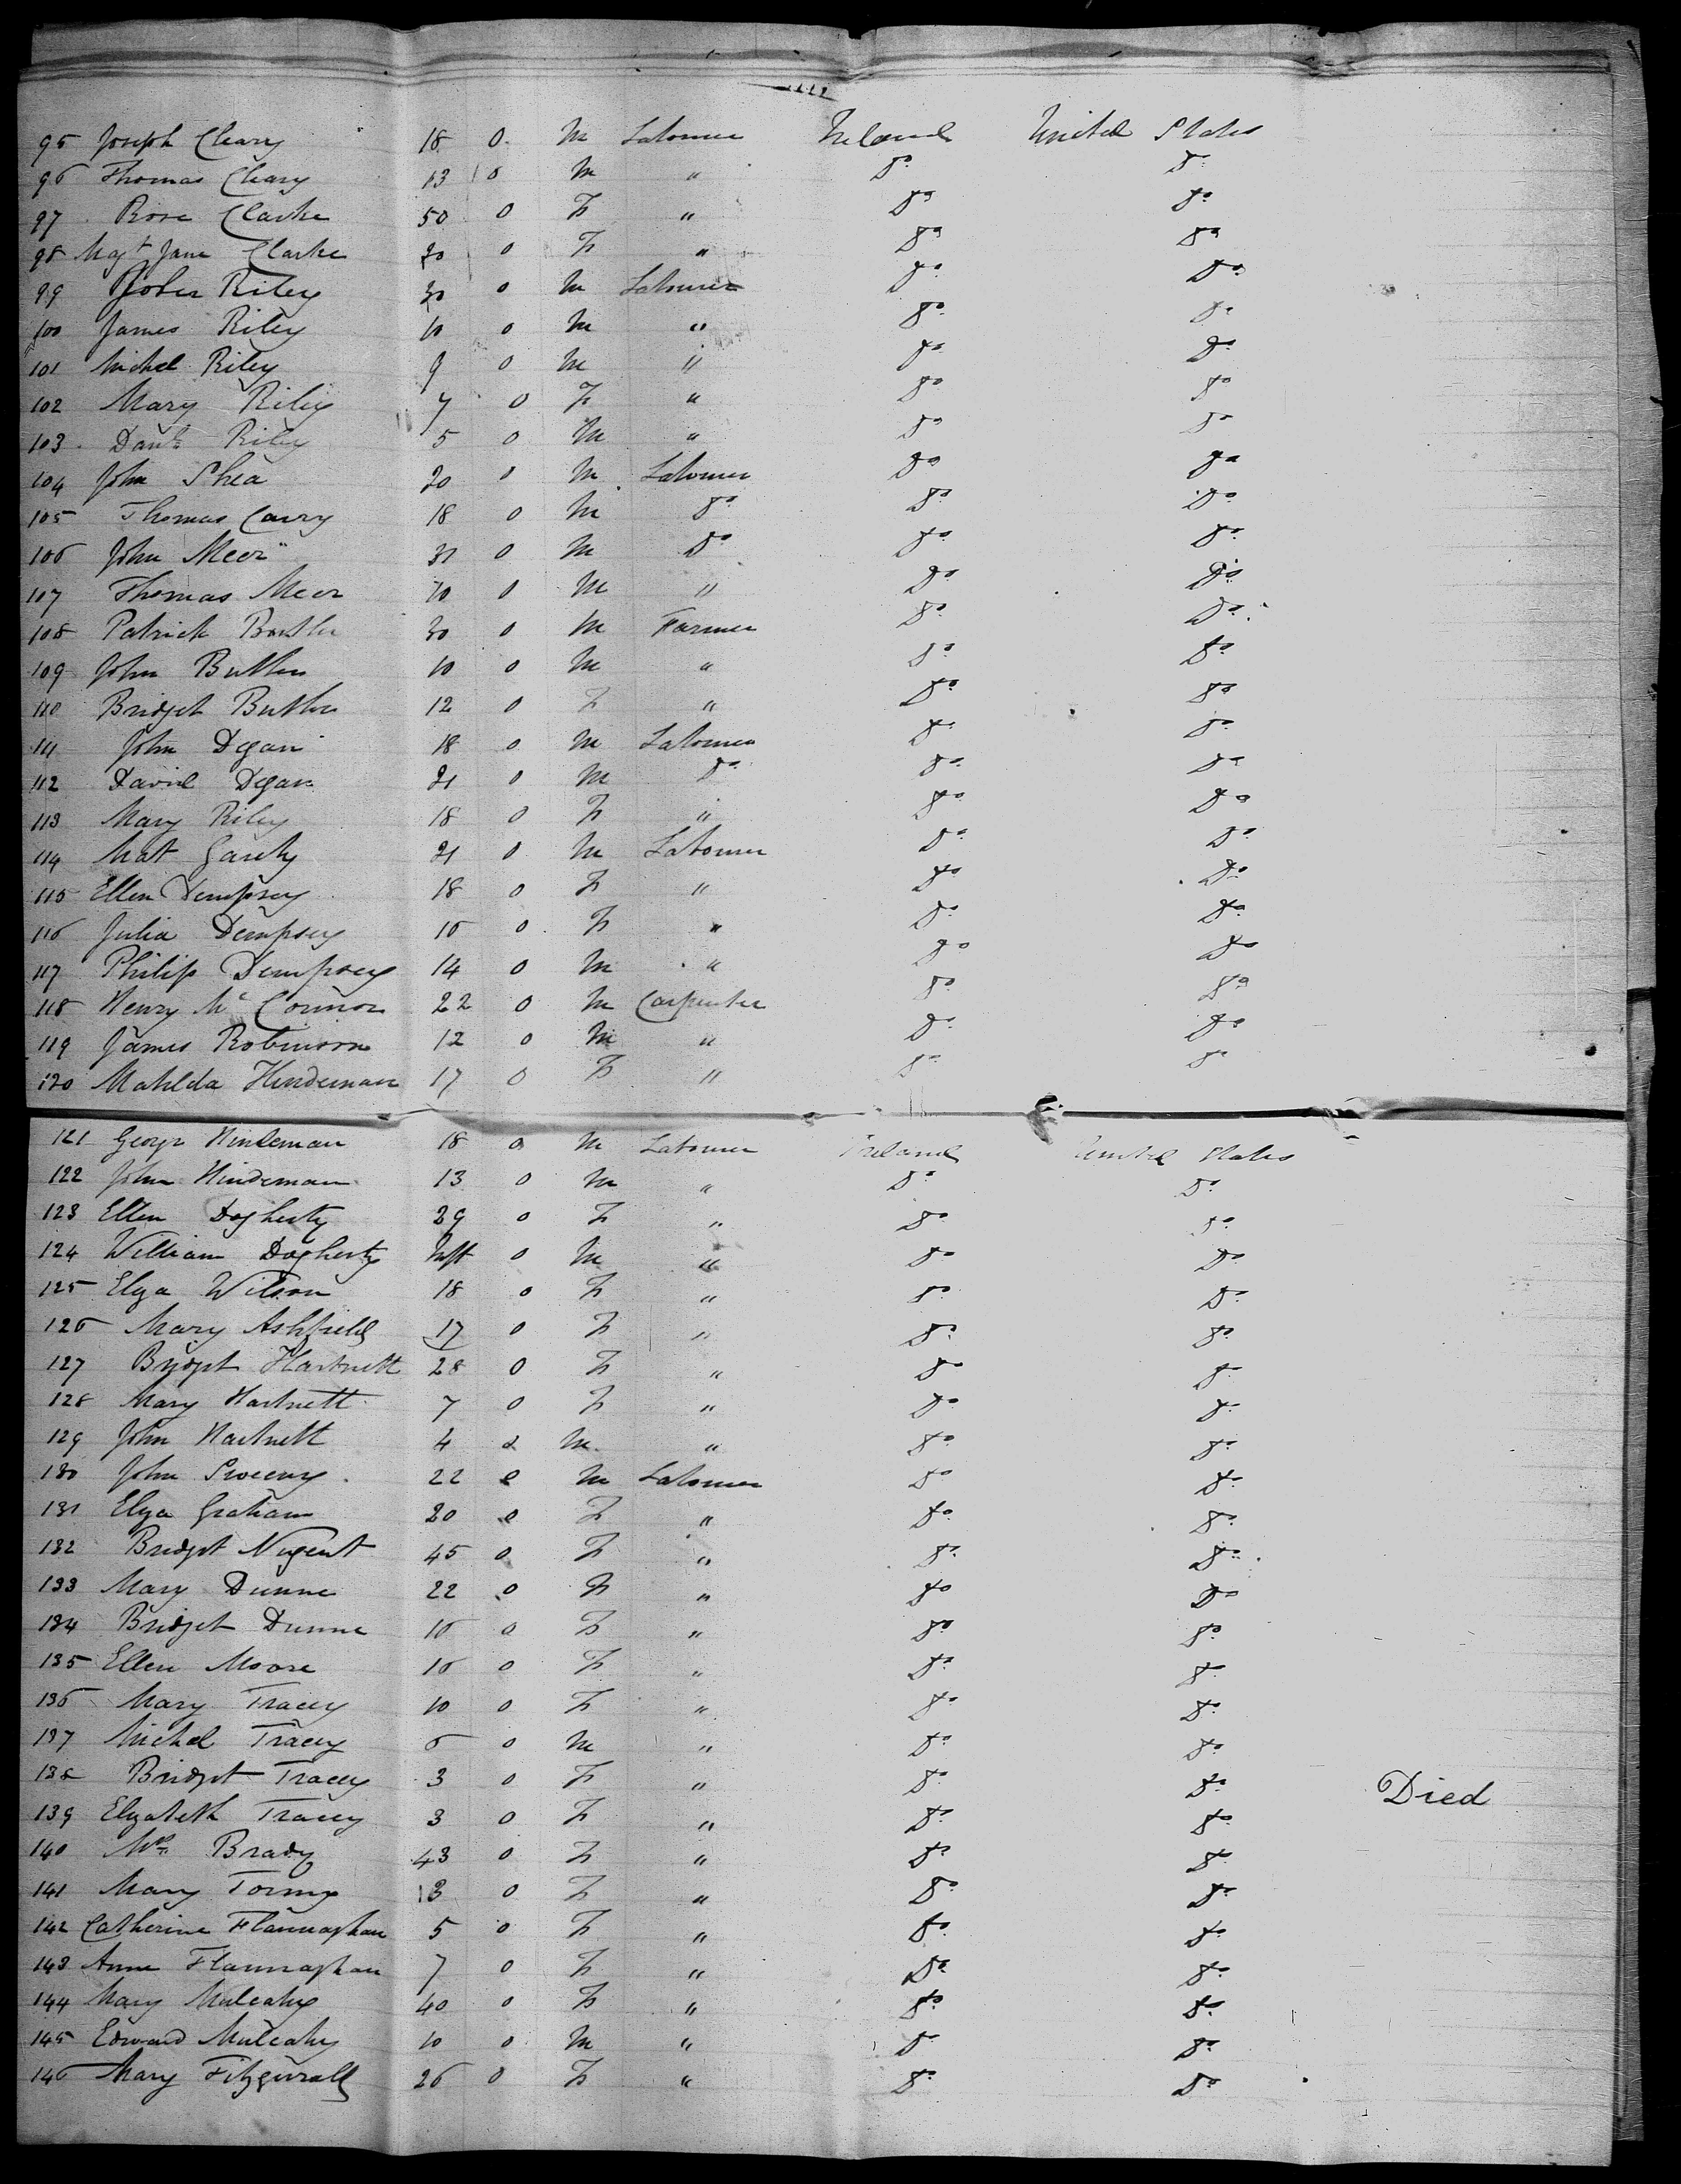 95 Joseph Cleary 18 0 M Labourer Ireland United States
96 Thomas Cleary 13 0 M " Do Do
97 Rose Clarke 50 0 F " Do Do
98 Mgt Jane Clarke 20 0 F " Do Do
99 Riley 30 0 M Labourer Do Do
100 James Riley 10 0 M " Do Do
101 Michel Riley 9 0 M " Do Do
102 Mary Riley 7 0 F " Do Do
103 Danl Riley 5 0 M " Do Do
104 John Shea 20 0 M Labourer Do Do
105 Thomas Carry 18 0 M Do Do Do
106 John Meer 31 0 M Do Do Do
107 Thomas Meer 10 0 M " Do Do
108 Patrick Butler 30 0 M Farmer Do Do
109 John Butler 10 0 M " Do Do
110 Bridget Butler 12 0 F " Do Do
111 John Degan 18 0 M Labourer Do Do
112 David Degan 21 0 M Do Do Do
113 Mary Riley 18 0 F " Do Do
114 Mat 21 0 M Labourer Do Do
115 Ellen Dempsey 18 0 F " Do Do
116 Julia Dempsey 16 0 F " Do Do
117 Philip Dempsey 14 0 M " Do Do
118 Henry Mc Connor 22 0 M Carpenter Do Do
119 James Robinson 12 0 M " Do Do
120 Matilda Hindeman 17 0 F " Do Do
121 George Hindeman 18 0 M Labourer Ireland United States
122 John Hindeman 13 0 M " Do Do
123 Ellen Dogherty 29 0 F " Do Do
124 William Dogherty Inft 0 M " Do Do
125 Elza Wilson 18 0 F " Do Do
126 Mary Ashfield 17 0 F " Do Do
127 Bridget Hartnett 28 0 F " Do Do
128 Mary Hartnett 7 0 F " Do Do
129 John Hartnett 4 0 M " Do Do
130 John Sweeny 22 0 M Labourer Do Do
131 Elza Graham 20 0 F " Do Do
132 Bridget Nugent 45 0 F " Do Do
133 Mary Dunne 22 0 F " Do Do
134 Bridget Dunne 16 0 F " Do Do
135 Ellen Moore 16 0 F " Do Do
136 Mary Tracey 10 0 F " Do Do
137 Michel Tracey 6 0 M " Do Do
138 Bridget Tracey 3 0 F " Do Do Died
139 Elizabeth Tracey 3 0 F " Do Do
140 Mrs Brady 43 0 F " Do Do
141 Mary Tormy 13 0 F " Do Do
142 Catherine Flannaghan 5 0 F " Do Do
143 Anne Flannaghan 7 0 F " Do Do
144 Mary Mulcahy 40 0 F " Do Do
145 Edward Mulcahy 10 0 M " Do Do
146 Mary Fitzgerrald 26 0 F " Do Do